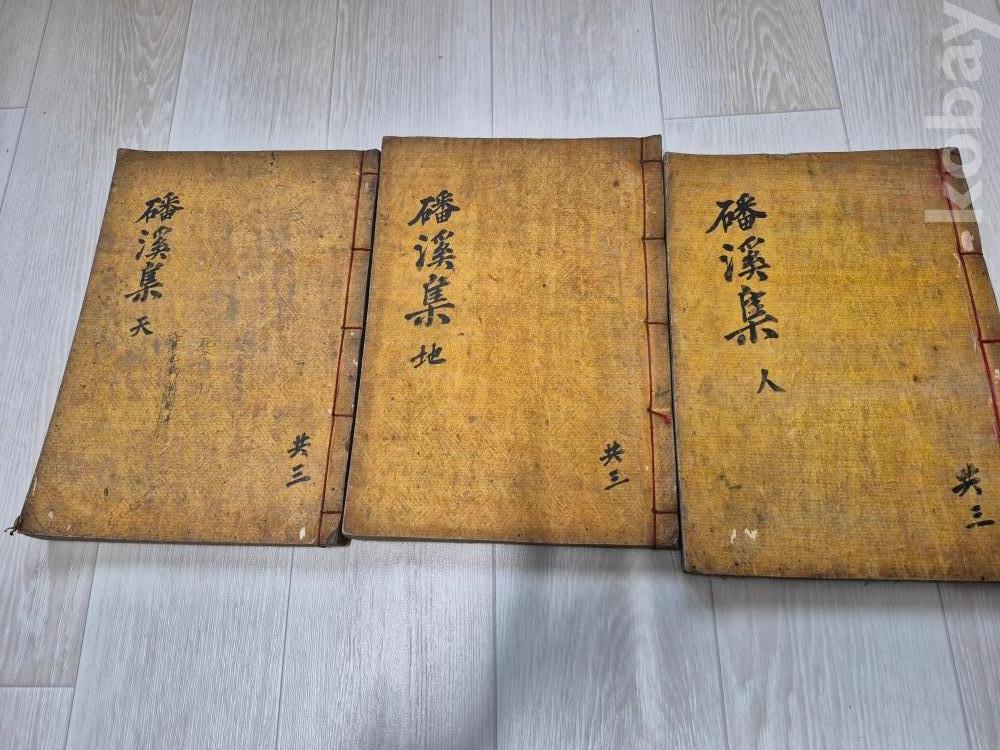 磻溪集 天
共三
磻溪集 地
共三
磻溪集 人
共三
kobay